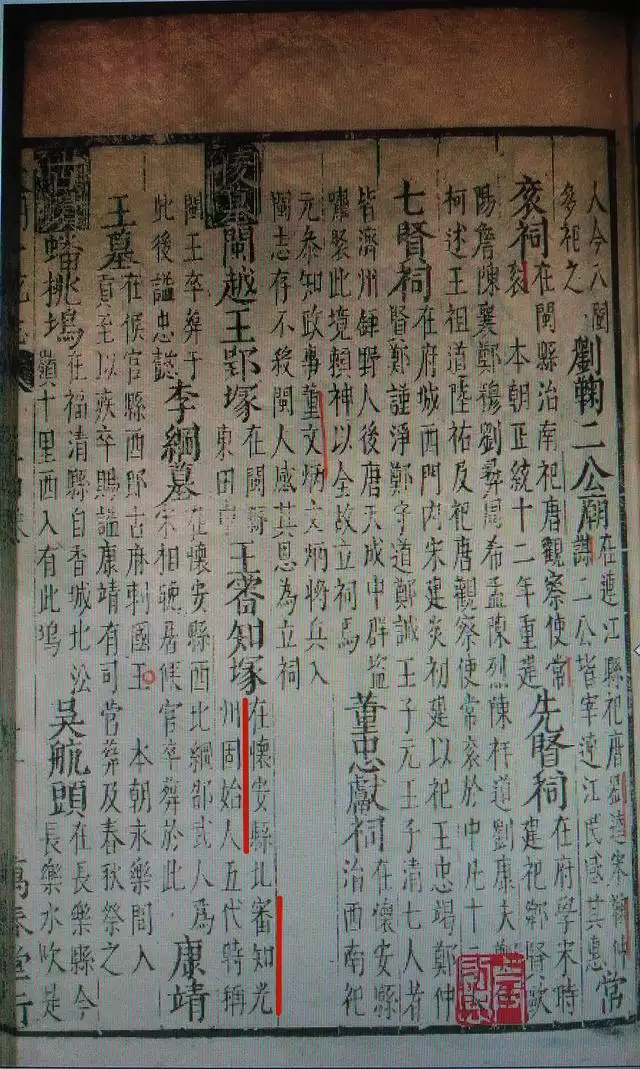 人今八閩
多祀之
劉鞠二公廟
在連江縣祀唐劉逵宋鞠仲
謀二公皆宰連江民感其惠
常
衮祠
在閩縣治南祀唐觀察使常
衮 本朝正統十二年重建
先賢祠
在府學宋時
建祀鄉賢歐
陽詹陳襄鄭穆劉彛周希孟陳烈陳祥道劉康夫鄭
柯述王祖道陸祐及祀唐觀察使常衮於中凡十二
七賢祠
在府城西門內宋建炎初建以祀王忠竭鄭仲
賢鄭謹淨鄭守道鄭誠王子元王子清七人者
皆濟州鉅野人後唐天成中群盜
嘯聚此境賴神以全故立祠焉
董忠獻祠
在懷安縣
治西南祀
元參知政事董文炳文炳將兵入
閩志存不殺閩人感其恩為立祠
陵墓
閩越王郢塚
在閩縣
東田
王審知塚
在懷安縣北審知光
州固始人五代時稱
閩王卒葬于
此後謚忠懿
李綱墓
在懷安縣西北綱邵武人為
宋相晚居候官卒葬於此
康靖
王墓
在候官縣西郭古麻剌國王 本朝永樂間入
貢至以疾卒賜謚康靖有司營葬及春秋祭之
古蹟
蟠桃塢
在福清縣自香城北沿
嶺十里西入有此塢
吳航頭
在長樂縣今
長樂水吹是